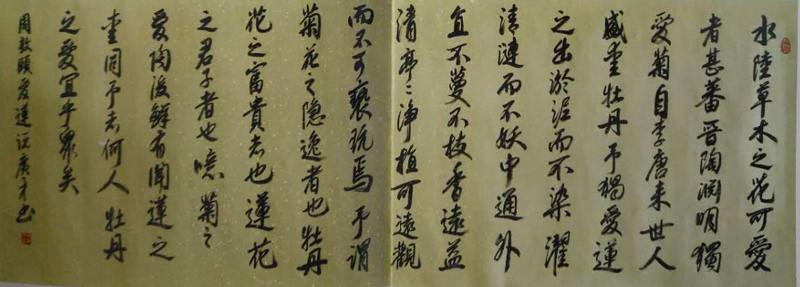 水陸草木之花可愛
者甚蕃晋陶渊明獨
愛菊自李唐来世人
盛愛牡丹予獨愛蓮
之出淤泥而不染濯
清漣而不妖中通外
直不蔓不枝香遠益
清亭〻净植可遠觀
而不可褻玩焉予谓
菊花之隐逸者也牡丹
花之富貴者也蓮花
之君子者也噫菊之
愛陶後鮮有聞蓮之
愛同予者何人牡丹
之愛宜乎衆矣
周敦頤愛蓮説